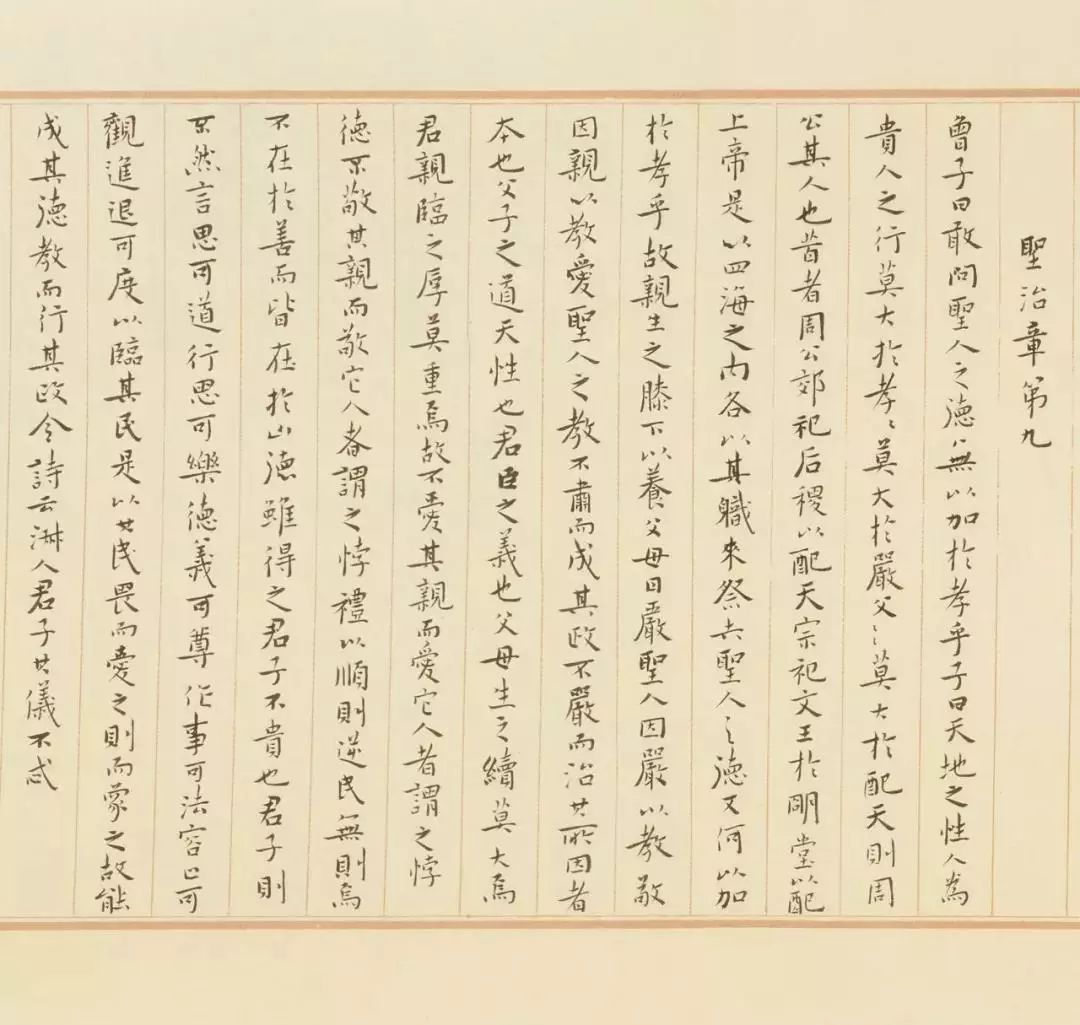 聖治章第九
曾子曰敢問聖人之德無以加於孝乎子曰天地之性人為
貴人之行莫大於孝〻莫大於嚴父〻莫大於配天則周
公其人也昔者周公郊祀后稷以配天宗祀文王於明堂以配
上帝是以四海之内各以其職來祭夫聖人之德又何以加
於孝乎故親生之膝下以養父母日嚴聖人因嚴以教敬
因親以教愛聖人之教不肅而成其政不嚴而治其所因者
本也父子之道天性也君臣之義也父母生之續莫大焉
君親臨之厚莫重焉故不愛其親而愛它人者謂之悖
德不敬其親而敬它人者謂之悖禮以順則逆民無則焉
不在於善而皆在於凶德雖得之君子不貴也君子則
不然言思可道行思可樂德義可尊作事可法容止可
觀進退可度以臨其民是以其民畏而愛之則而象之故能
成其德教而行其政令詩云淑人君子其儀不忒